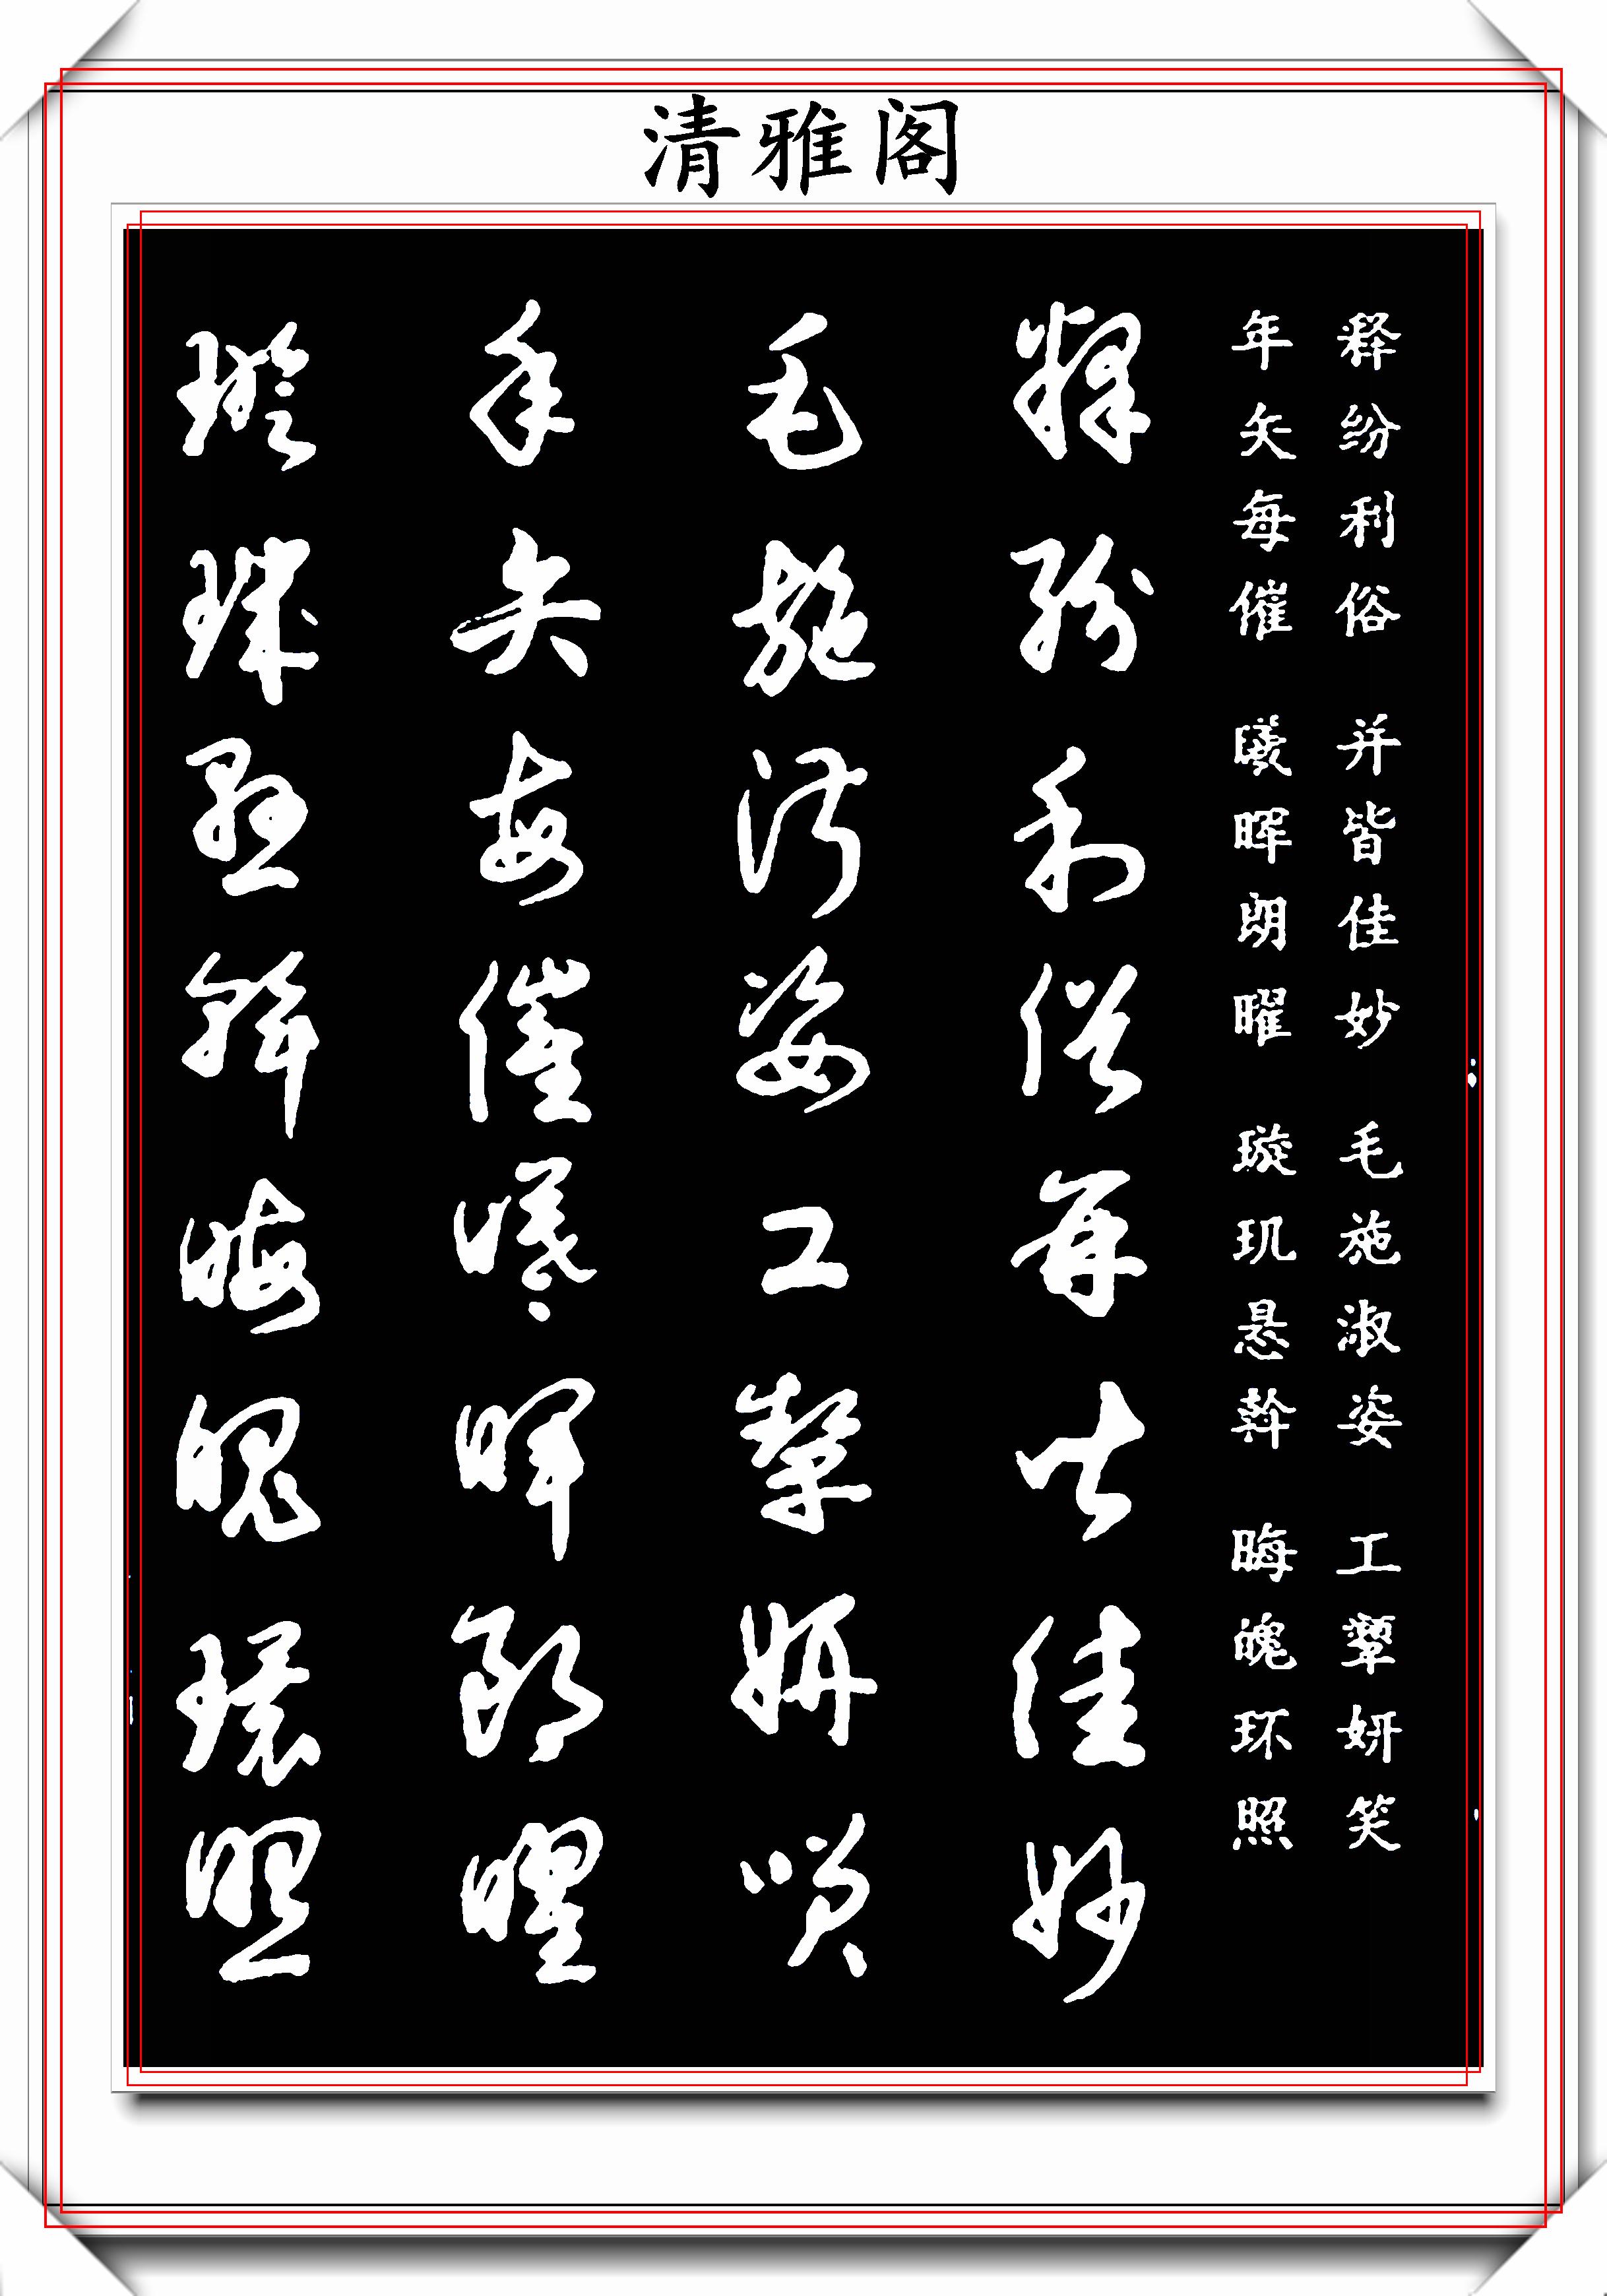 清雅阁
释纷利俗 并皆佳妙 毛施淑姿 工颦妍笑
年矢每催 曦晖朗曜 璇玑悬斡 晦魄环照
釋紛利俗并皆佳妙
毛施淑姿工顰妍咲
年矢每催曦暉朗曜
璇璣懸斡晦魄環照